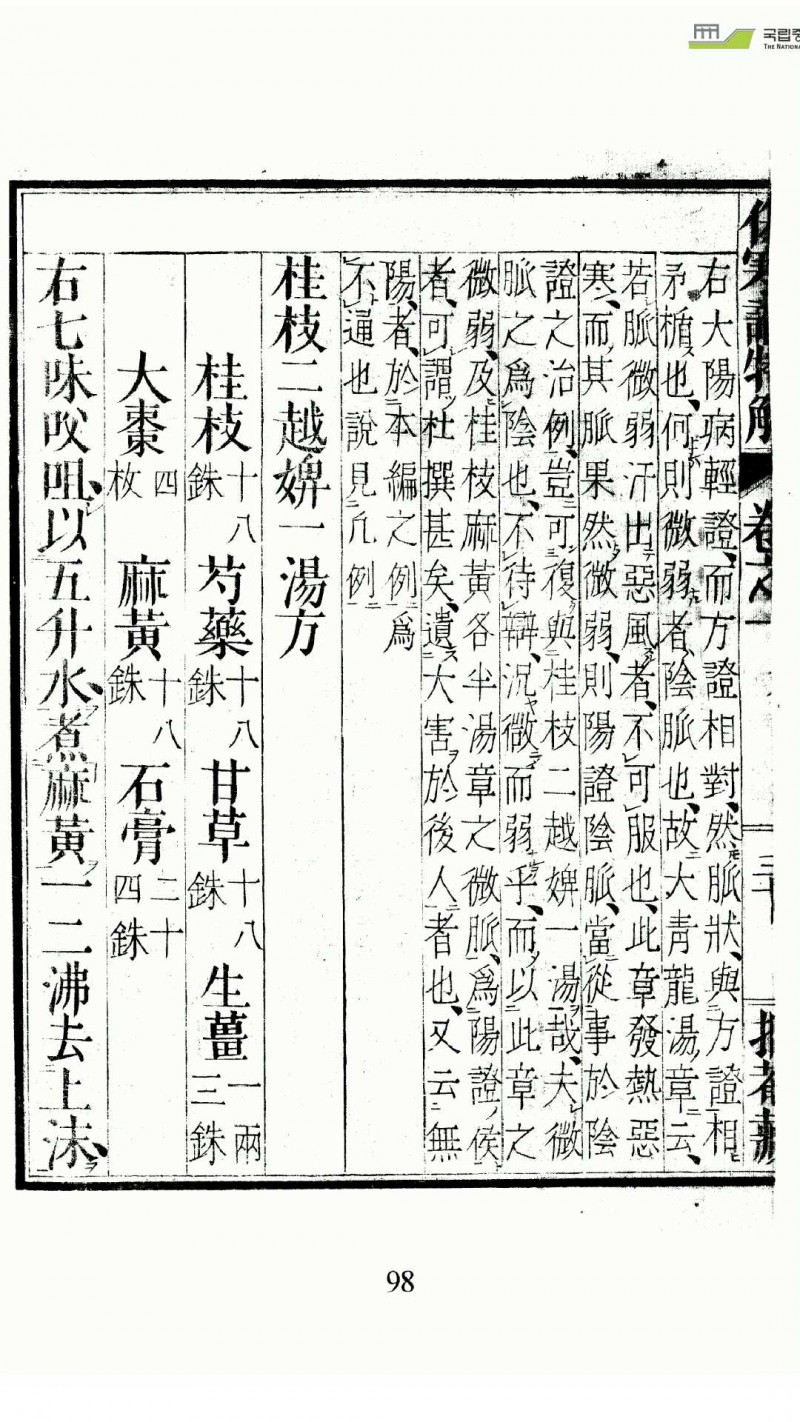 국립중
THE NATIONA
傷寒論特解 卷之一 三十
右大陽病輕證、而方證相對、然脈狀、與方證相
矛楯也、何則微弱者、陰脈也、故大青龍湯章云、
若脈微弱汗出惡風者、不可服也、此章發熱惡
寒、而其脈果然微弱、則陽證陰脈、當從事於陰
證之治例、豈可復與桂枝二越婢一湯哉、夫微
脈之爲陰也、不待辯、況微而弱乎、而以此章之
微弱、及桂枝麻黃各半湯章之微脈、爲陽證ノ候
者、可謂杜撰甚矣、遺大害於後人者也、又云無
陽者、於本編之例爲
不通也說見凡例
桂枝二越婢一湯方
桂枝十八銖 芍藥十八銖 甘草十八銖 生薑一兩三銖
大棗四枚 麻黃十八銖 石膏二十四銖
右七味㕮咀、以五升水、煮麻黃一二沸去上沫、
98